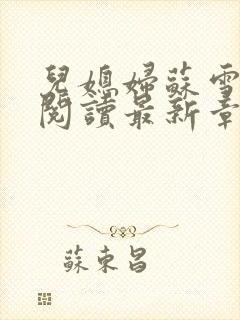 兒媳婦蘇雪
閱讀最新章
蘇東昌